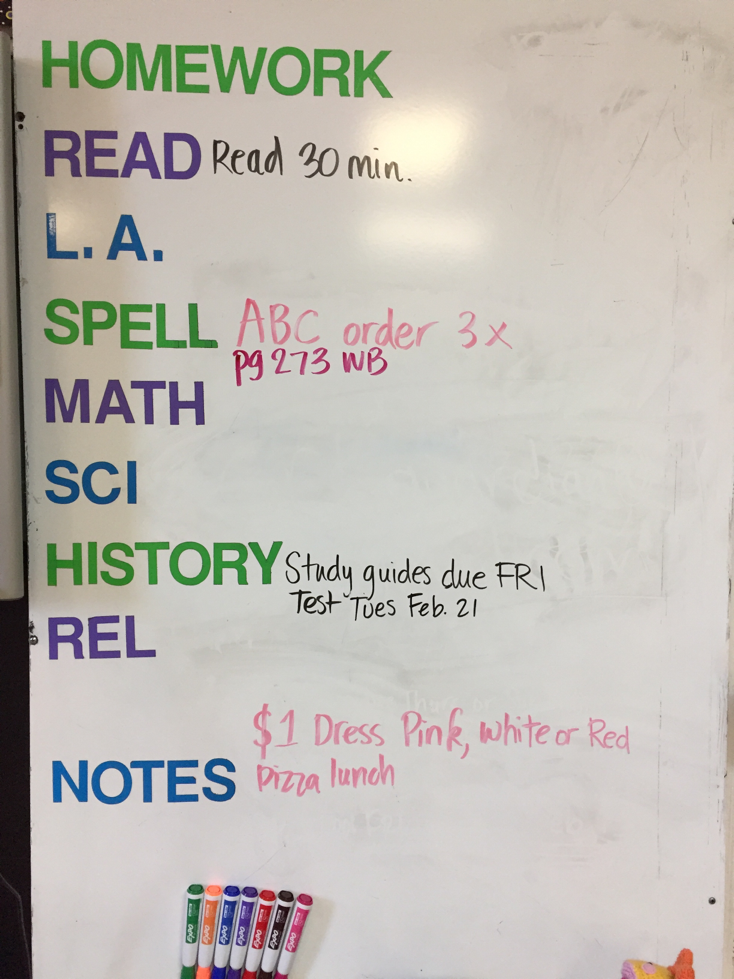 HOMEWORK
READ Read 30 min.
L. A.
SPELL ABC order 3x
pg 273 WB
MATH
SCI
HISTORY Study guides due FRI
Test Tues Feb. 21
REL
$1 Dress Pink, white or Red
NOTES pizza lunch
EXPO EXPO EXPO EXPO EXPO EXPO EXPO